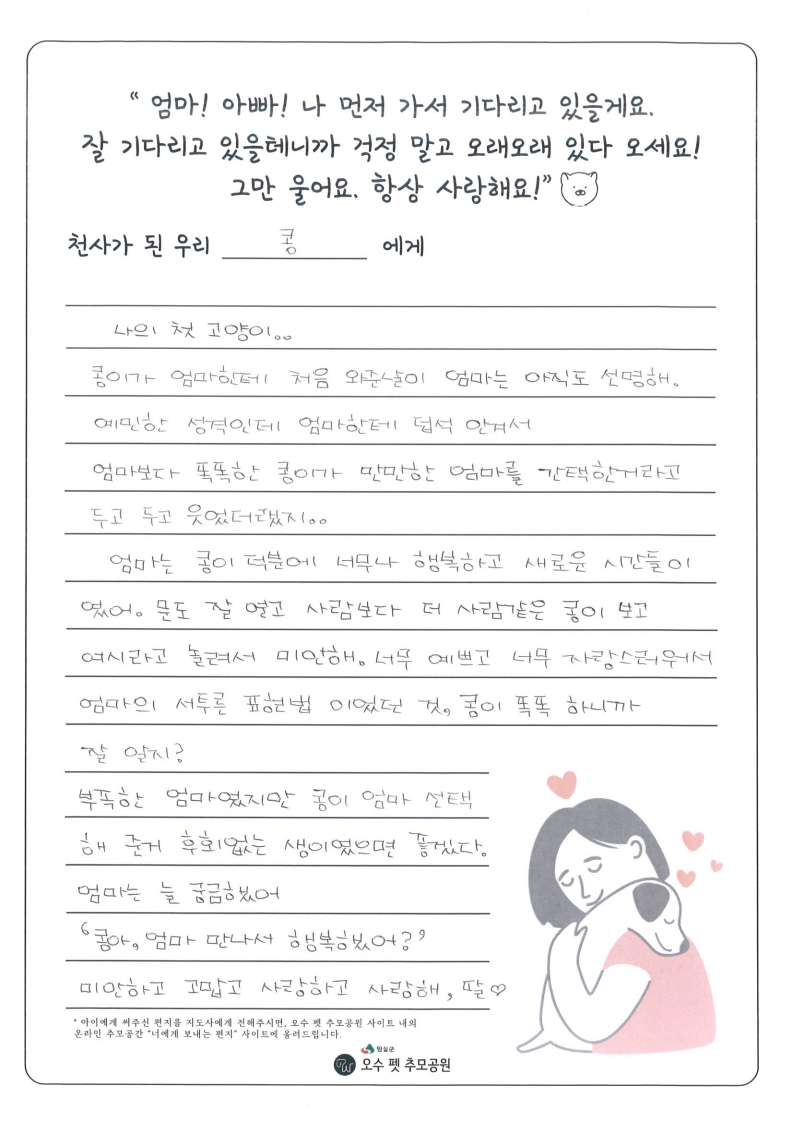 “ 엄마! 아빠! 나 먼저 가서 기다리고 있을게요.
잘 기다리고 있을테니까 걱정 말고 오래오래 있다 오세요!
그만 울어요. 항상 사랑해요!”
천사가 된 우리 콩 에게
나의 첫 고양이。。
콩이가 엄마한테 처음 와준날이 엄마는 아직도 선명해.
예민한 성격인데 엄마한테 덥석 안겨서
엄마보다 똑똑한 콩이가 만만한 엄마를 간택한거라고
두고 두고 웃었더랬지。。
엄마는 콩이 덕분에 너무나 행복하고 새로운 시간들이
였어. 문도 잘 열고 사람보다 더 사람같은 콩이 보고
여시라고 놀려서 미안해. 너무 예쁘고 너무 자랑스러워서
엄마의 서투른 표현법 이었던 것, 콩이 똑똑 하니까
잘 알지?
부족한 엄마였지만 콩이 엄마 선택
해 준거 후회없는 생이였으면 좋겠다.
엄마는 늘 궁금했어
‘콩아, 엄마 만나서 행복했어?’
미안하고 고맙고 사랑하고 사랑해, 딸♡
* 아이에게 써주신 편지를 지도사에게 전해주시면, 오수 펫 추모공원 사이트 내의
온라인 추모공간 “너에게 보내는 편지” 사이트에 올려드립니다.
임실군
오수 펫 추모공원